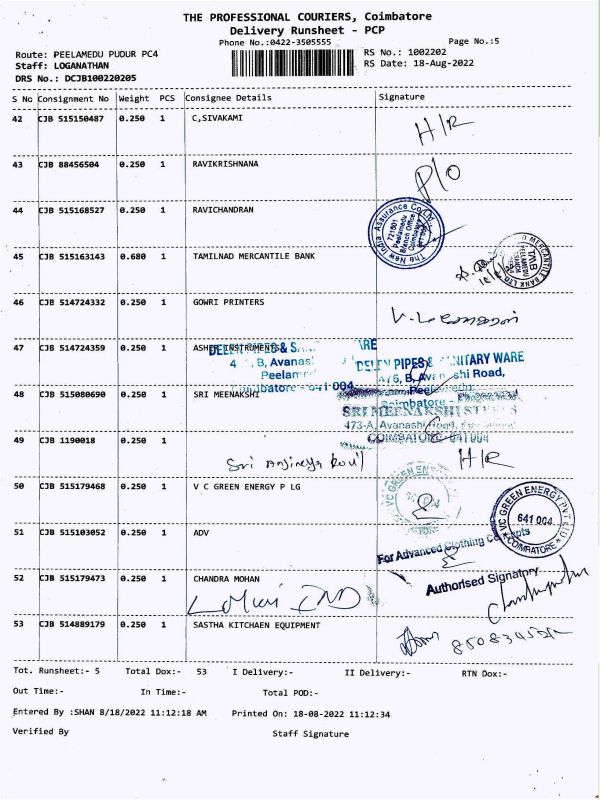 THE PROFESSIONAL COURIERS, Coimbatore
Delivery Runsheet - PCP
Phone No.:0422-3505555 Page No.:5
Route: PEELAMEDU PUDUR PC4 RS No.: 1002202
Staff: LOGANATHAN RS Date: 18-Aug-2022
DRS No.: DCJB100220205
S No Consignment No Weight PCS Consignee Details Signature
42 CJB 515150487 0.250 1 C,SIVAKAMI
H/R
43 CJB 88456504 0.250 1 RAVIKRISHNANA
P/O
44 CJB 515168527 0.250 1 RAVICHANDRAN
The New India Assurance Co. Ltd.
721601
Peelamedu
Branch Office
45 CJB 515163143 0.680 1 TAMILNAD MERCANTILE BANK
46 CJB 514724332 0.250 1 GOWRI PRINTERS
47 CJB 514724359 0.250 1 ASHER INSTRUMENTS
DELEN PIPES & SANITARY WARE
A/6, B, Avanashi Road,
Peelamedu
Coimbatore - 641 004
48 CJB 515080690 0.250 1 SRI MEENAKSHI
SRI MEENAKSHI
473-A, Avanashi Road,
COIMBATORE-641 004
49 CJB 1190018 0.250 1
Sri Anjineya Kovil H/R
50 CJB 515179468 0.250 1 V C GREEN ENERGY P LG
VC GREEN ENERGY PVT LTD
641 004
COIMBATORE
51 CJB 515103052 0.250 1 ADV
For Advanced Clothing Concepts
52 CJB 515179473 0.250 1 CHANDRA MOHAN
Authorised Signatory
53 CJB 514889179 0.250 1 SASTHA KITCHAEN EQUIPMENT
Tot. Runsheet:- 5 Total Dox:- 53 I Delivery:- II Delivery:- RTN Dox:-
Out Time:- In Time:- Total POD:-
Entered By :SHAN 8/18/2022 11:12:18 AM Printed On: 18-08-2022 11:12:34
Verified By Staff Signature